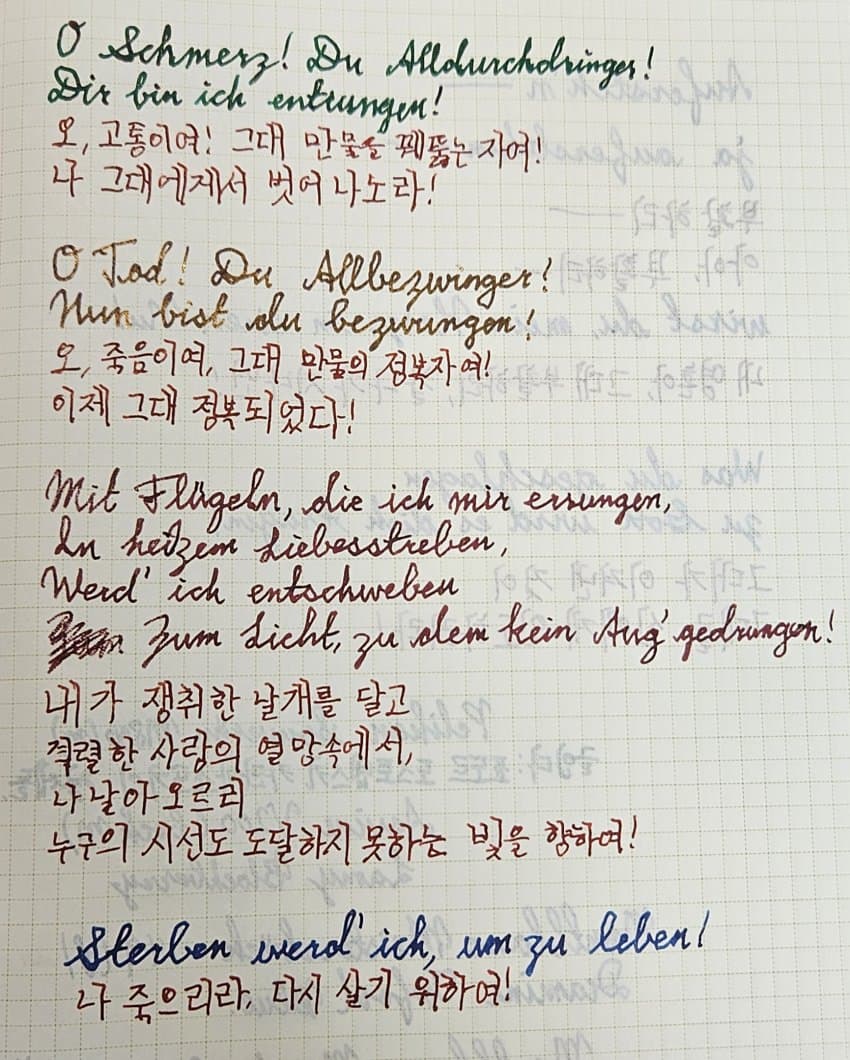 O Schmerz! Du Alldurchdringer!
Dir bin ich entrungen!
오, 고통이여! 그대 만물을 꿰뚫는 자여!
나 그대에게서 벗어나노라!
O Tod! Du Allbezwinger!
Nun bist du bezwungen!
오, 죽음이여, 그대 만물의 정복자여!
이제 그대 정복되었다!
Mit Flügeln, die ich mir errungen,
In heißem Liebesstreben,
Werd' ich entschweben
Zum Licht, zu dem kein Aug' gedrungen!
내가 쟁취한 날개를 달고
격렬한 사랑의 열망속에서,
나 날아오르리
누구의 시선도 도달하지 못하는 빛을 향하여!
Sterben werd' ich, um zu leben!
나 죽으리라, 다시 살기 위하여!